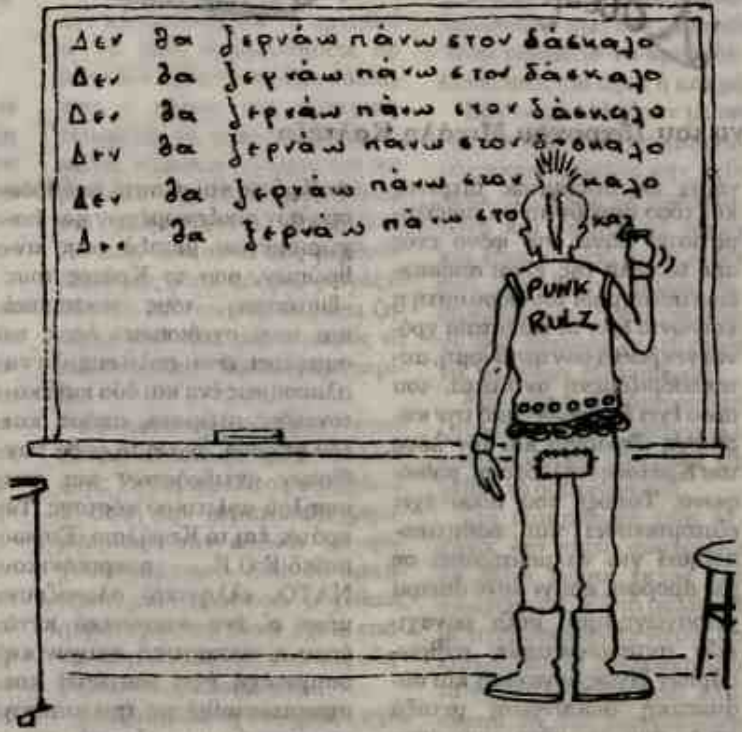 Δεν θα ξερνάω πάνω στον δάσκαλο
Δεν θα ξερνάω πάνω στον δάσκαλο
Δεν θα ξερνάω πάνω στον δάσκαλο
Δεν θα ξερνάω πάνω στον δάσκαλο
Δεν θα ξερνάω πάνω στον καλο
Δεν θα ξερνάω πάνω στο καλ
PUNK
RULZ